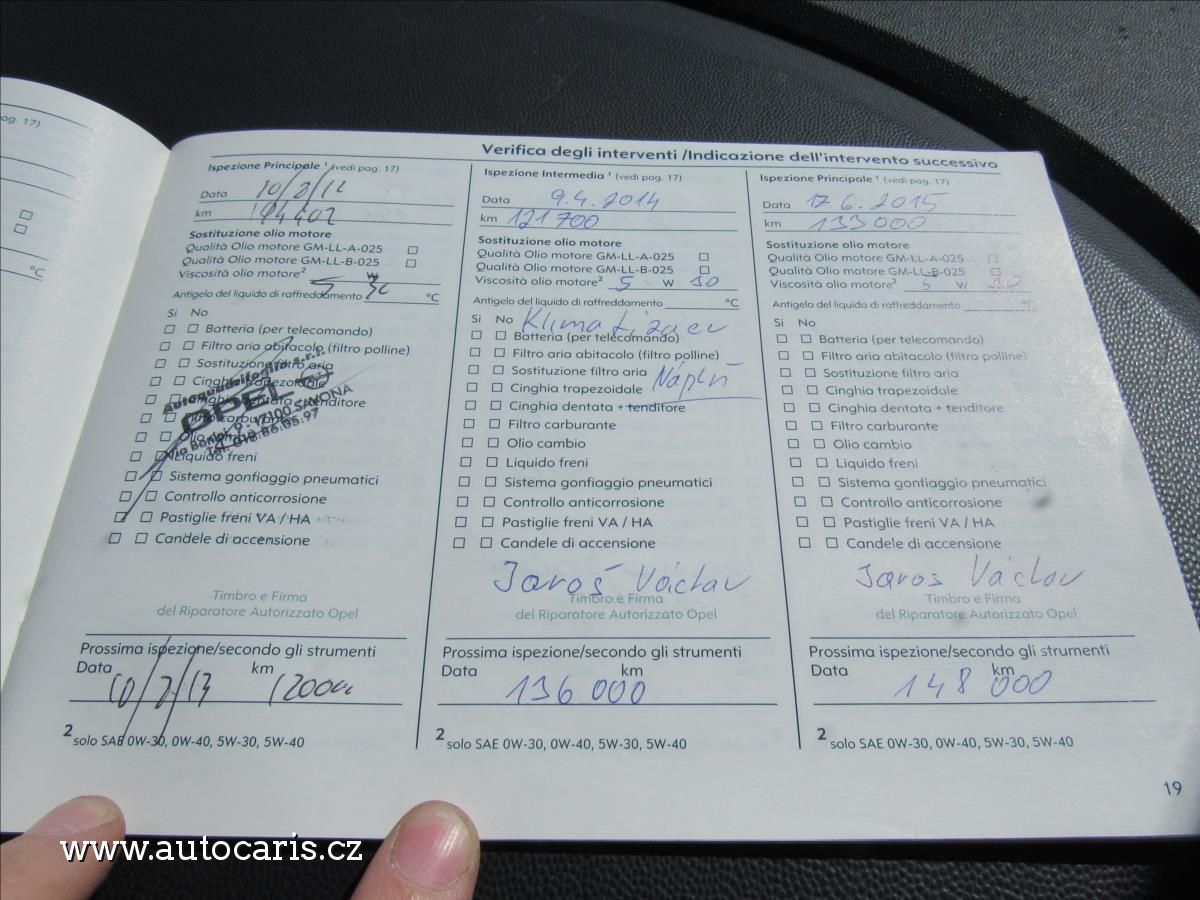 ag. 17)
°C
Verifica degli interventi /Indicazione dell'intervento successivo
Ispezione Principale ¹ (vedi pag. 17)
Data 10/2/12
km
Sostituzione olio motore
Qualità Olio motore GM-LL-A-025 ☐
Qualità Olio motore GM-LL-B-025 ☐
Viscosità olio motore² 5 W 30
Antigelo del liquido di raffreddamento °C
Si No
☐ ☐ Batteria (per telecomando)
☐ ☐ Filtro aria abitacolo (filtro polline)
☐ ☐ Sostituzione filtro aria
☐ ☐ Cinghia trapezoidale
☐ ☐ Cinghia dentata + tenditore
☐ ☐ Filtro carburante
☐ ☐ Olio cambio
☐ ☐ Liquido freni
☐ ☐ Sistema gonfiaggio pneumatici
☐ ☐ Controllo anticorrosione
☐ ☐ Pastiglie freni VA / HA
☐ ☐ Candele di accensione
Autoquadrifoglio s.r.l.
OPEL
17100 SAVONA
Timbro e Firma
del Riparatore Autorizzato Opel
Prossima ispezione/secondo gli strumenti
Data km
10/2/13
2 solo SAE 0W-30, 0W-40, 5W-30, 5W-40
Ispezione Intermedia ¹ (vedi pag. 17)
Data 9.4.2014
km 121 700
Sostituzione olio motore
Qualità Olio motore GM-LL-A-025 ☐
Qualità Olio motore GM-LL-B-025 ☐
Viscosità olio motore² 5 W 30
Antigelo del liquido di raffreddamento °C
Si No Klimatizace
☐ ☐ Batteria (per telecomando)
☐ ☐ Filtro aria abitacolo (filtro polline)
☐ ☐ Sostituzione filtro aria Náplň
☐ ☐ Cinghia trapezoidale
☐ ☐ Cinghia dentata + tenditore
☐ ☐ Filtro carburante
☐ ☐ Olio cambio
☐ ☐ Liquido freni
☐ ☐ Sistema gonfiaggio pneumatici
☐ ☐ Controllo anticorrosione
☐ ☐ Pastiglie freni VA / HA
☐ ☐ Candele di accensione
Jaroš Václav
Timbro e Firma
del Riparatore Autorizzato Opel
Prossima ispezione/secondo gli strumenti
Data km
136 000
2 solo SAE 0W-30, 0W-40, 5W-30, 5W-40
Ispezione Principale ¹ (vedi pag. 17)
Data 17 6. 2015
km 133 000
Sostituzione olio motore
Qualità Olio motore GM-LL-A-025 ☐
Qualità Olio motore GM-LL-B-025 ☐
Viscosità olio motore² 5 W 30
Antigelo del liquido di raffreddamento °C
Si No
☐ ☐ Batteria (per telecomando)
☐ ☐ Filtro aria abitacolo (filtro polline)
☐ ☐ Sostituzione filtro aria
☐ ☐ Cinghia trapezoidale
☐ ☐ Cinghia dentata + tenditore
☐ ☐ Filtro carburante
☐ ☐ Olio cambio
☐ ☐ Liquido freni
☐ ☐ Sistema gonfiaggio pneumatici
☐ ☐ Controllo anticorrosione
☐ ☐ Pastiglie freni VA / HA
☐ ☐ Candele di accensione
Jaros Václav
Timbro e Firma
del Riparatore Autorizzato Opel
Prossima ispezione/secondo gli strumenti
Data km
148 000
2 solo SAE 0W-30, 0W-40, 5W-30, 5W-40
19
www.autocaris.cz